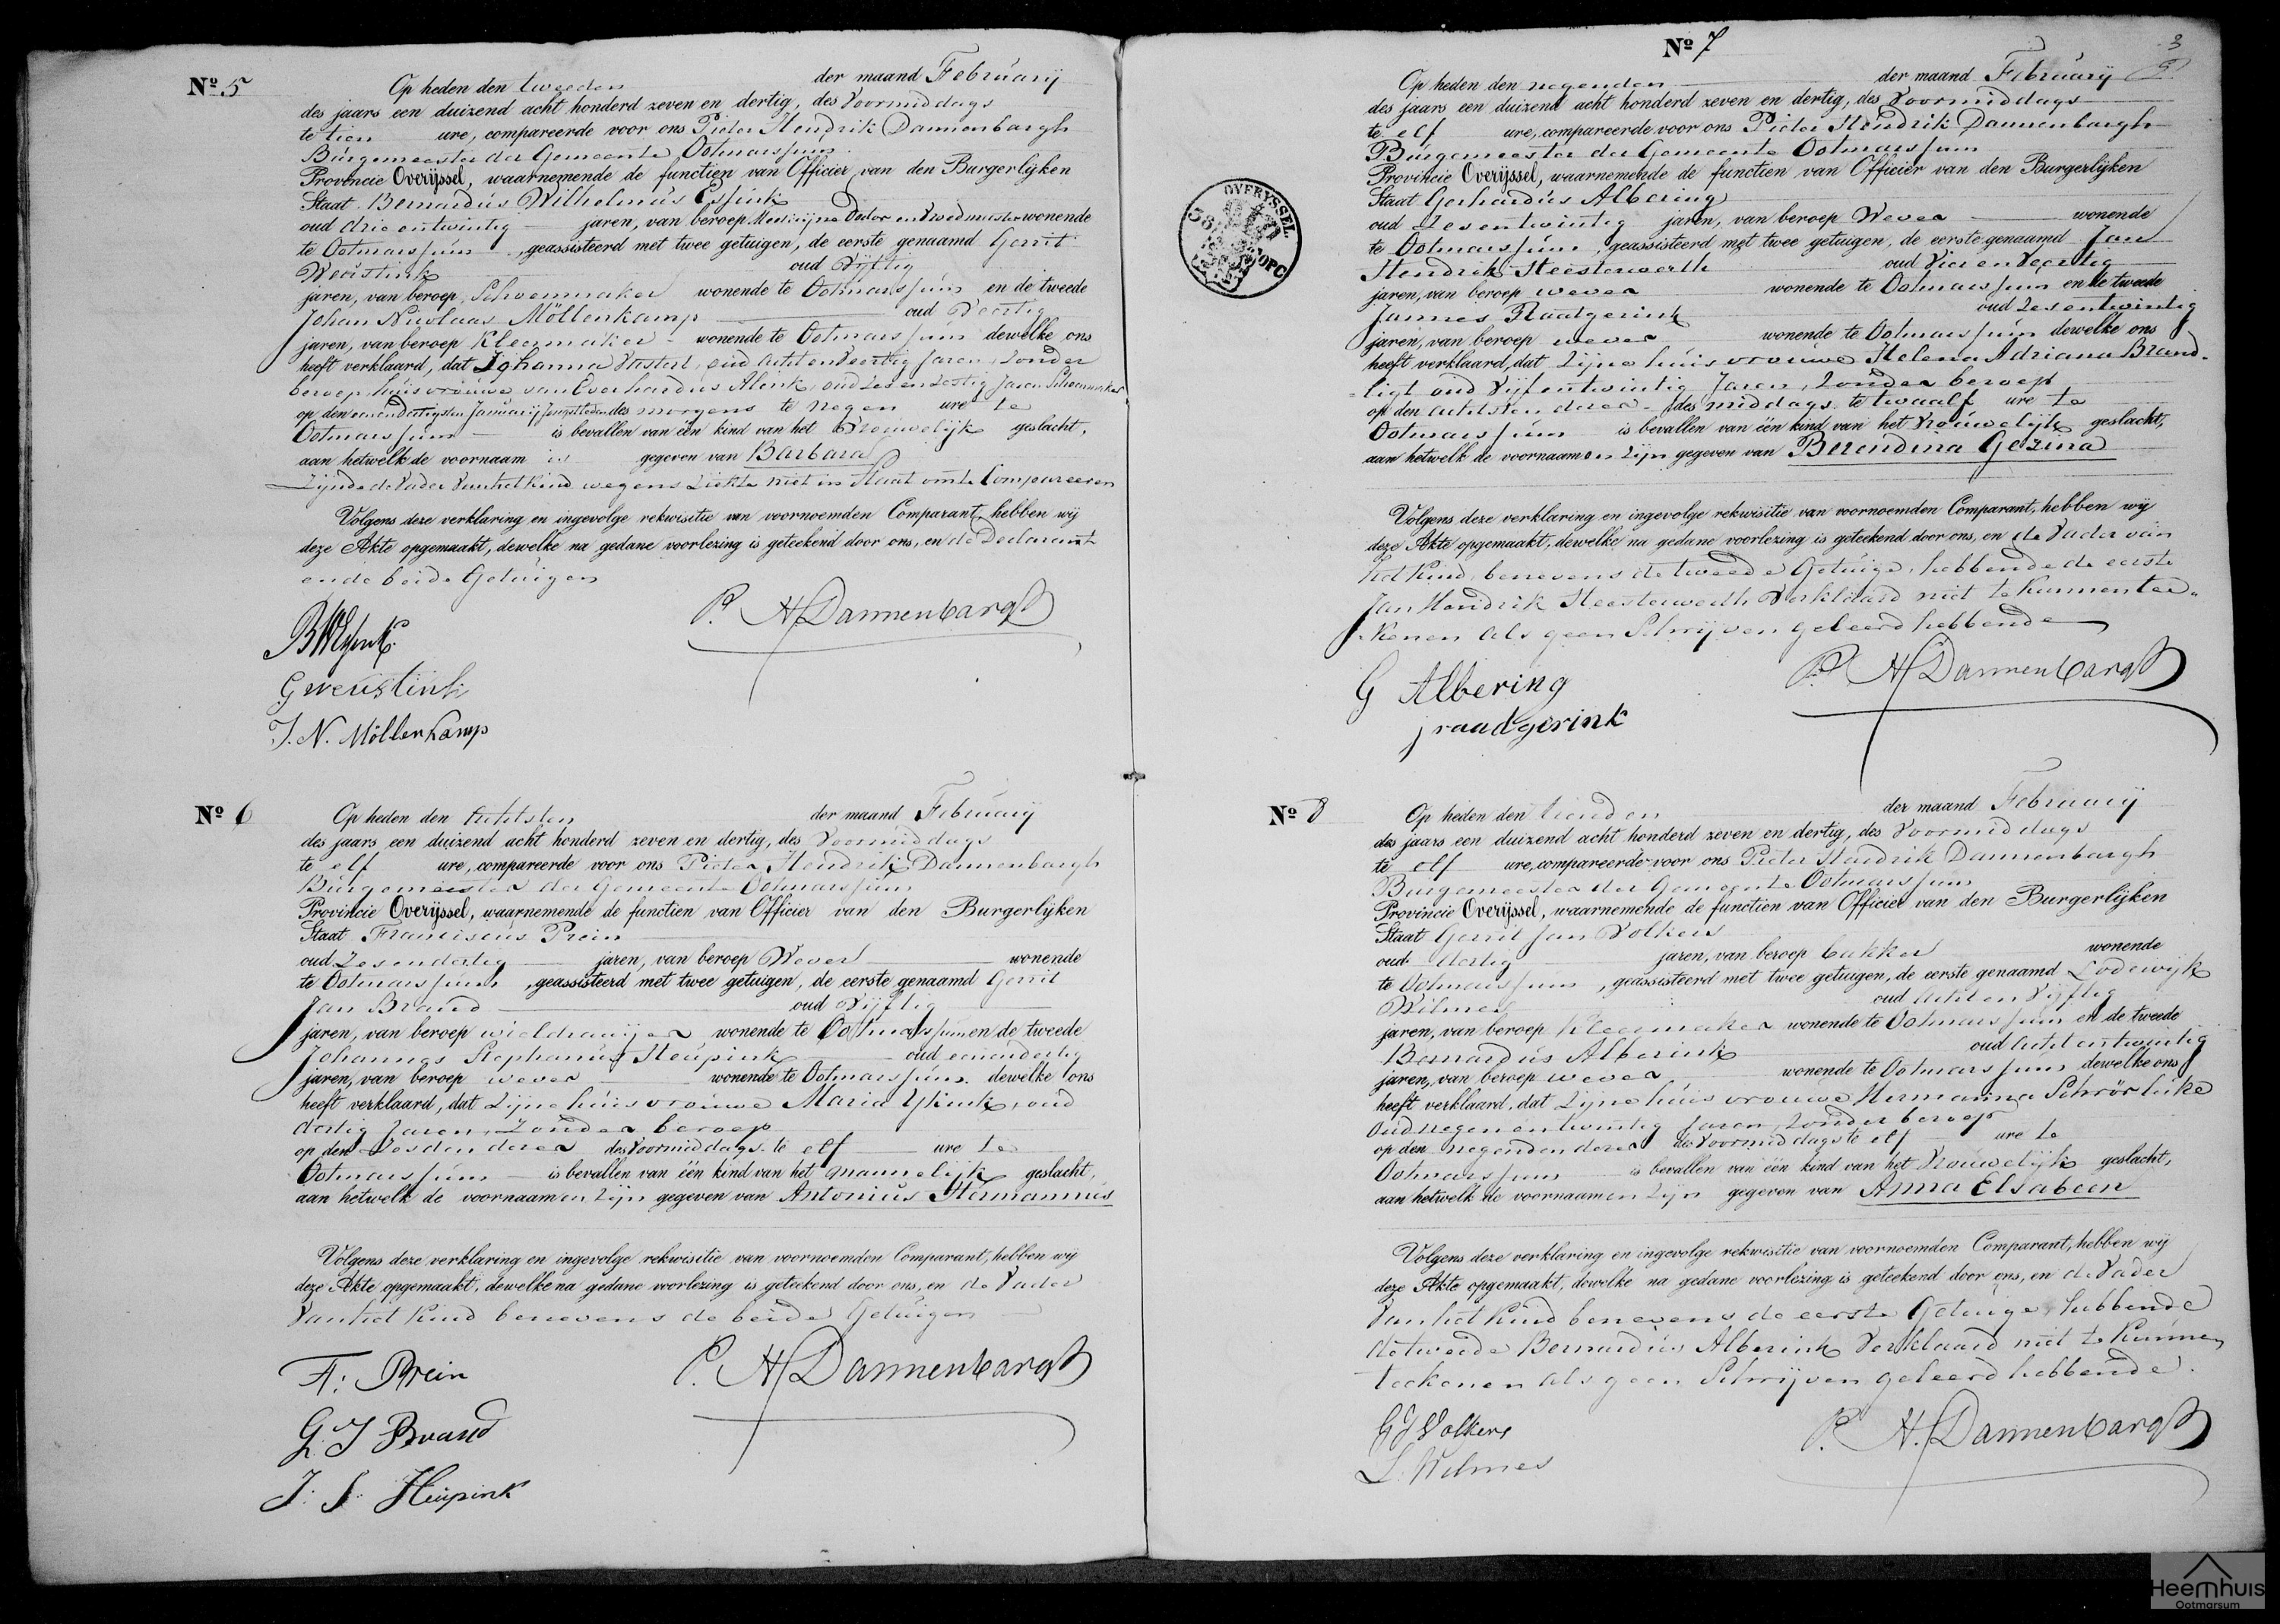 Nº 5
Op heden den tweeden der maand Februarij
des jaars een duizend acht honderd zeven en dertig, des Voormiddags
te tien ure, compareerde voor ons Pieter Hendrik Dannenbargh
Burgemeester der Gemeente Ootmarssum
Provincie Overijssel, waarnemende de functien van Officier van den Burgerlijken
Staat Bernardus Wilhelmus Essink
oud drie entwintig jaren, van beroep Medicijne Doctor en Vroedmeester wonende
te Ootmarssum, geassisteerd met twee getuigen, de eerste genaamd Gerrit
Weustink oud Vijftig
jaren, van beroep Schoenmaker wonende te Ootmarssum en de tweede
Johan Nicolaas Möllenkamp oud Veertig
jaren, van beroep Kleermaker wonende te Ootmarssum dewelke ons
heeft verklaard, dat Johanna oud achtenveertig Jaren, zonder
beroep, huisvrouwe van Everhardus Alink, oud zesenzestig Jaren Schoenmaker
op den eenendertigsten Januarij Jongstleden des morgens te negen ure te
Ootmarssum is bevallen van één kind van het Vrouwelijk geslacht,
aan hetwelk de voornaam is gegeven van Barbara
Zijnde de Vader van het Kind wegens Ziekte niet in Staat om te Compareeren
Volgens deze verklaring en ingevolge rekwisitie van voornoemden Comparant, hebben wij
deze Akte opgemaakt, dewelke na gedane voorlezing is geteekend door ons, en de Declarant
en de beide Getuigen
P. H. Dannenbargh
G Weustink
J. N. Möllenkamp
Nº 6
Op heden den Achtsten der maand Februarij
des jaars een duizend acht honderd zeven en dertig, des Voormiddags
te elf ure, compareerde voor ons Pieter Hendrik Dannenbargh
Burgemeester der Gemeente Ootmarssum
Provincie Overijssel, waarnemende de functien van Officier van den Burgerlijken
Staat Franciscus Prein
oud Zesendertig jaren, van beroep Wever wonende
te Ootmarssum, geassisteerd met twee getuigen, de eerste genaamd Gerrit
Jan Brand oud Vijftig
jaren, van beroep wieldraaijer wonende te Ootmarssum en de tweede
Johannes Stephanus Heupink oud eenendertig
jaren, van beroep wever wonende te Ootmarssum dewelke ons
heeft verklaard, dat Zijne huisvrouwe Maria oud
dertig Jaren, Zonder beroep
op den Zesden dezer des Voormiddags te elf ure te
Ootmarssum is bevallen van één kind van het mannelijk geslacht,
aan hetwelk de voornaamen Zijn gegeven van Antonius Hermannus
Volgens deze verklaring en ingevolge rekwisitie van voornoemden Comparant, hebben wij
deze Akte opgemaakt, dewelke na gedane voorlezing is geteekend door ons, en de Vader
van het Kind benevens de beide Getuigen
F: Prein
P. H. Dannenbargh
G. J Brand
J. S. Heupink
3
Nº 7
Op heden den negenden der maand Februarij
des jaars een duizend acht honderd zeven en dertig, des Voormiddags
te elf ure, compareerde voor ons Pieter Hendrik Dannenbargh
Burgemeester der Gemeente Ootmarssum
Provincie Overijssel, waarnemende de functien van Officier van den Burgerlijken
Staat Gerhardus Albering
oud Zesentwintig jaren, van beroep Wever wonende
te Ootmarssum, geassisteerd met twee getuigen, de eerste genaamd Jan
Hendrik Heesterwerth oud Vier en Veertig
jaren, van beroep wever wonende te Ootmarssum en de tweede
Jannes Raatgerink oud Zesentwintig
jaren, van beroep wever wonende te Ootmarssum dewelke ons
heeft verklaard, dat Zijne huisvrouwe Helena Adriana Brand-
ligt oud Vijfentwintig Jaren, Zonder beroep
op den achtsten dezer des middags te twaalf ure te
Ootmarssum is bevallen van één kind van het Vrouwelijk geslacht,
aan hetwelk de voornaamen Zijn gegeven van Berendina Gezina
Volgens deze verklaring en ingevolge rekwisitie van voornoemden Comparant, hebben wij
deze Akte opgemaakt, dewelke na gedane voorlezing is geteekend door ons, en de Vader van
het Kind, benevens de tweede Getuige, hebbende de eerste
Jan Hendrik Heesterwerth Verklaard niet te kunnen tee-
kenen als geen Schrijven geleerd hebbende
G Albering
P. H. Dannenbargh
j raadgerink
OVERYSSEL.
Nº 8
Op heden den tienden der maand Februarij
des jaars een duizend acht honderd zeven en dertig, des Voormiddags
te elf ure, compareerde voor ons Pieter Hendrik Dannenbargh
Burgemeester der Gemeente Ootmarssum
Provincie Overijssel, waarnemende de functien van Officier van den Burgerlijken
Staat Gerrit Jan Volkers
oud dertig jaren, van beroep bakker wonende
te Ootmarssum, geassisteerd met twee getuigen, de eerste genaamd Lodewijk
Wilmes oud Acht en Vijftig
jaren, van beroep Kleermaker wonende te Ootmarssum en de tweede
Bernardus Alberink oud Achtentwintig
jaren, van beroep wever wonende te Ootmarssum dewelke ons
heeft verklaard, dat Zijne huisvrouwe Hermanna Schrörlüke
Oud negenentwintig Jaren, Zonder beroep
op den negenden dezer des Voormiddags te elf ure te
Ootmarssum is bevallen van één kind van het Vrouwelijk geslacht,
aan hetwelk de voornaamen Zijn gegeven van Anna Elsabeen
Volgens deze verklaring en ingevolge rekwisitie van voornoemden Comparant, hebben wij
deze Akte opgemaakt, dewelke na gedane voorlezing is geteekend door ons, en de Vader
van het Kind benevens de eerste Getuige, hebbende
de tweede Bernardus Alberink Verklaard niet te Kunnen
teekenen als geen Schrijven geleerd hebbende.
G J Volkers
P. H. Dannenbargh
L. Wilmes
Heemhuis
Ootmarsum